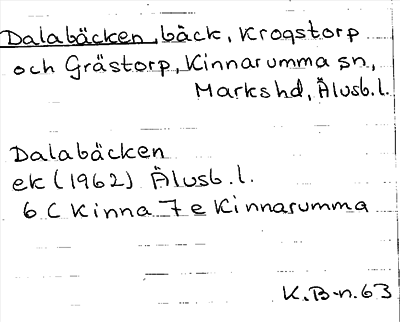 Dalabäcken, bäck, Krogstorp
och Grästorp, Kinnarumma sn,
Markshd, Älvsb.l.
Dalabäcken
ek (1962) Älvsb.l.
6 C Kinna 7 e Kinnarumma
K.B-n.63